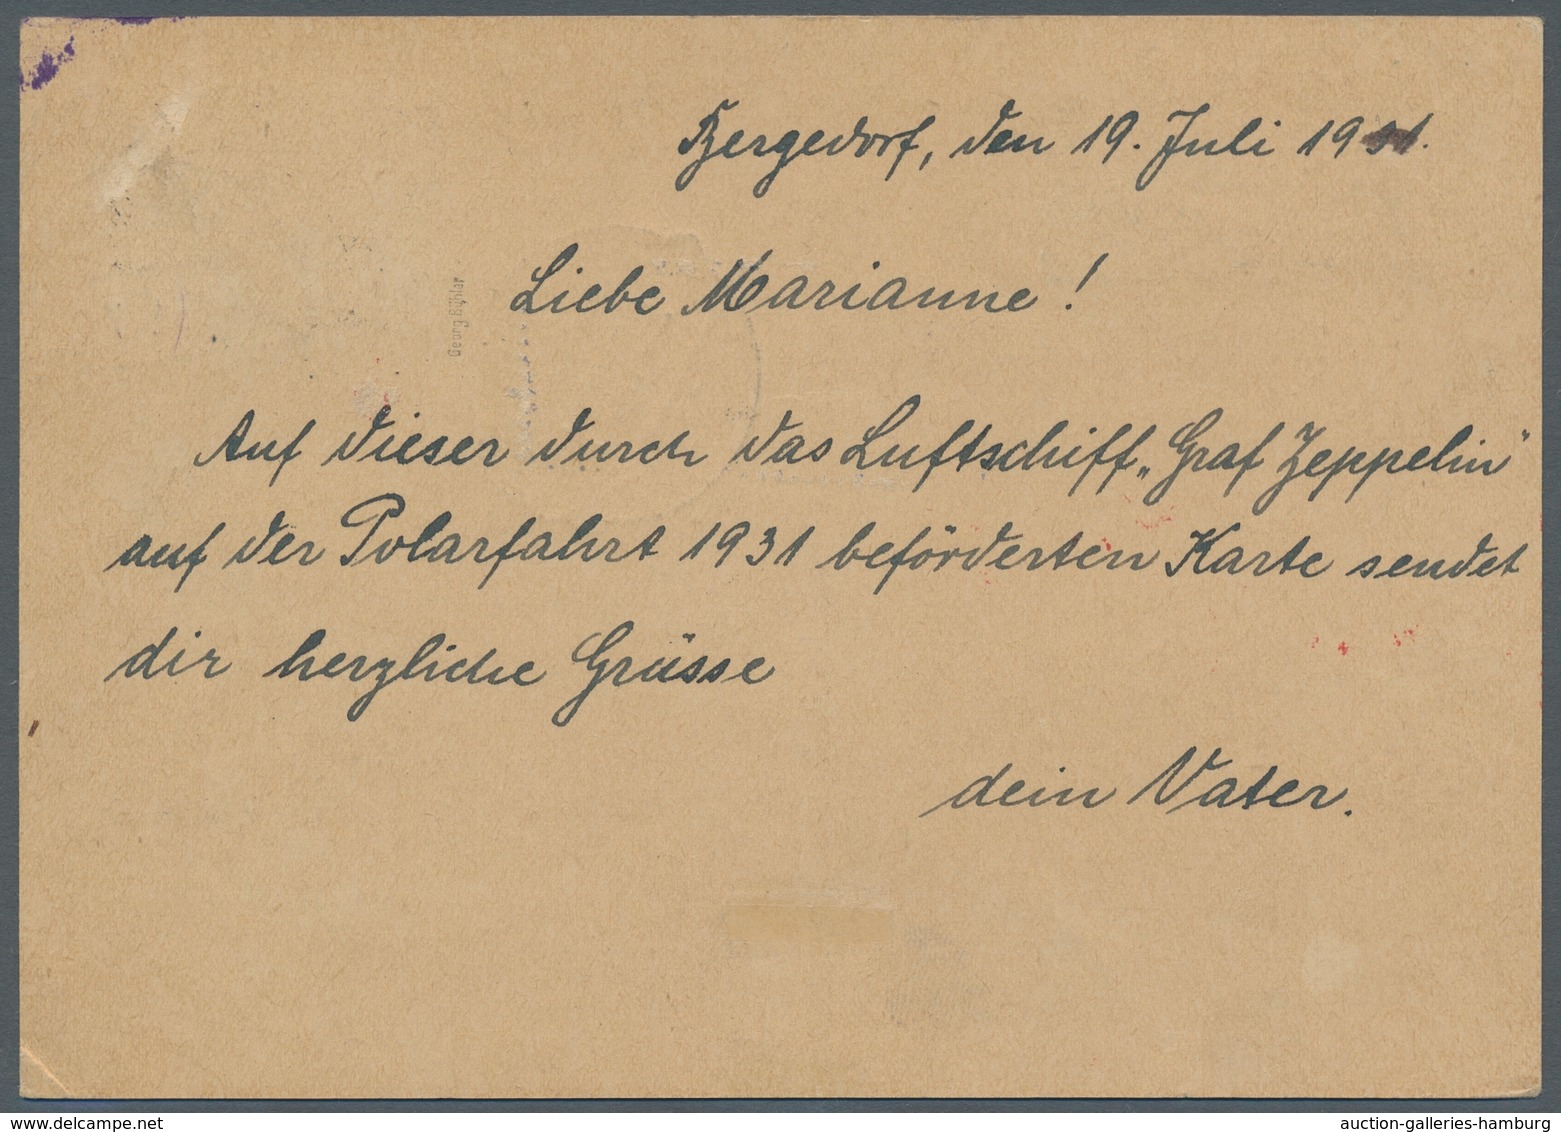 Bergedorf, den 19. Juli 1931.
Liebe Marianne!
Georg Bühler
Auf dieser durch das Luftschiff „Graf Zeppelin"
auf der Polarfahrt 1931 beförderten Karte sendet
dir herzliche Grüsse
dein Vater.
auction-galleries-hamburg